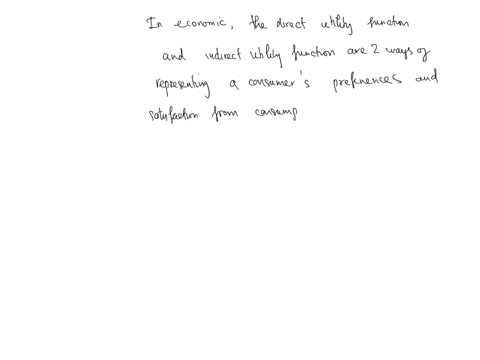 In economic, the direct utility function
and indirect utility function are 2 ways of
representing a consumer's preferences and
satisfaction from consump